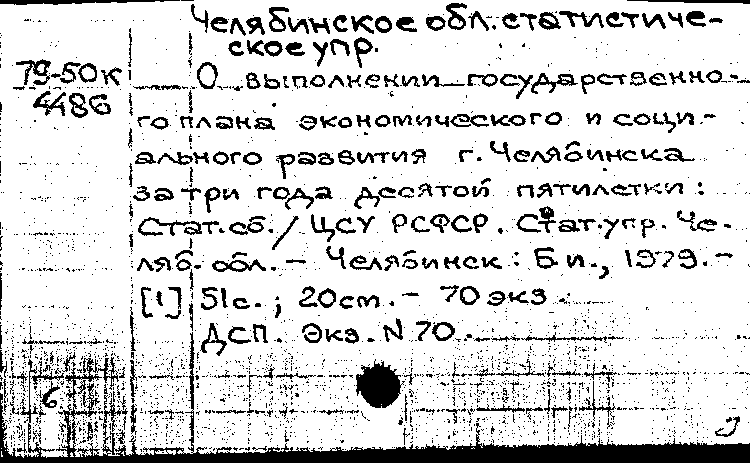 Челябинское обл. статистиче-
ское упр.
79-50к О выполнении государственно-
4486 го плана экономического и соци-
ального развития г. Челябинска
за три года десятой пятилетки:
Стат. сб. / ЦСУ РСФСР. Стат. упр. Че-
ляб. обл. - Челябинск: Б. и., 1979. -
[1] 51с.; 20см. - 70 экз.
ДСП. Экз. N 70.
6